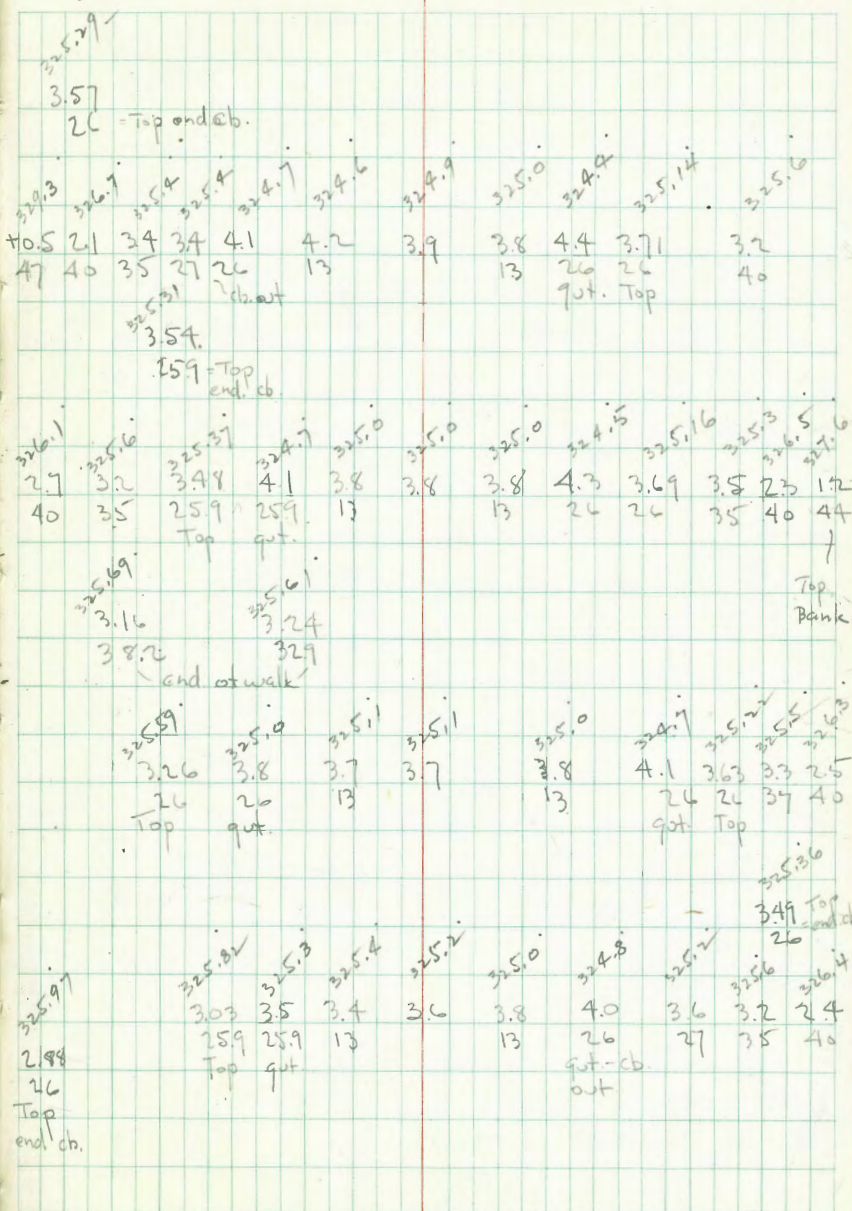 325.29
3.57
26 = Top end cb.
329.3 326.7 325.4 325.4 324.7 324.6 324.9 325.0 324.4 325.14 325.6
+0.5 2.1 3.4 3.4 4.1 4.2 3.9 3.8 4.4 3.71 3.2
47 40 35 27 26 13 13 26 26 40
cb. out gut. Top
325.31
3.54
25.9 = Top
end. cb
326.1 325.6 325.37 324.7 325.0 325.0 325.0 324.5 325.16 325.3 326.5 327.6
2.7 3.2 3.48 4.1 3.8 3.8 3.8 4.3 3.69 3.5 2.3 1.2
40 35 25.9 25.9 13 13 26 26 35 40 44
Top gut.
Top
Bank
325.69 325.61
3.16 3.24
38.2 32.9
end of walk
325.59 325.0 325.1 325.1 325.0 324.7 325.22 325.5 326.3
3.26 3.8 3.7 3.7 3.8 4.1 3.63 3.3 2.5
26 26 13 13 26 26 37 40
Top gut. gut. Top
325.36
3.49 Top
end. cb
26
325.97 325.82 325.3 325.4 325.2 325.0 324.8 325.2 325.6 326.4
3.03 3.5 3.4 3.6 3.8 4.0 3.6 3.2 2.4
25.9 25.9 13 13 26 27 35 40
Top gut gut.-cb.
out
2.88
26
Top
end. cb.